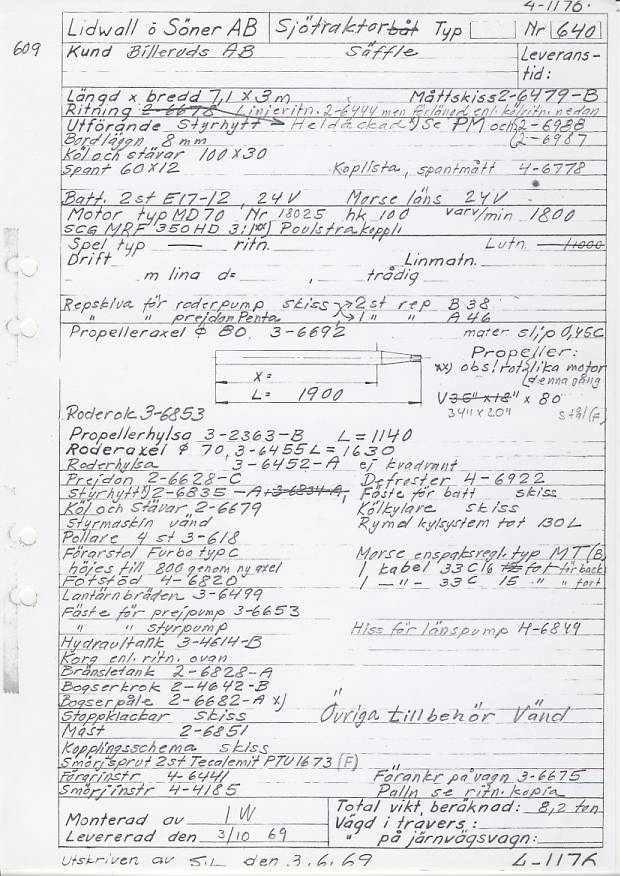 4-1176.
Lidwall ö Söner AB Sjötraktorbåt Typ Nr 640
609
Kund Billeruds AB Säffle Leverans-
tid:
Längd x bredd 7,1 x 3 m Måttskiss 2-6479-B
Ritning 2-6678 Linjeritn. 2-6444 men förlängd enl. kölritn. nedan
Utförande Styrhytt Heldäckad Se PM och 2-6988
2-6987
Bordlägg. 8 mm
Köl och stävar 100 x 30
Spant 60 x 12 Kaplista, spantmått 4-6778
Batt. 2 st E17-12, 24 V Morse läns 24 V
Motor typ MD 70 Nr 18025 hk 100 varv/min 1800
SCG MRF 350 HD 3:1 xx) Poulstrakoppl.
Spel typ — ritn. Lutn. 1/1000
Drift Linmatn.
m lina d= , trådig
Repskiva för roderpump skiss → 2 st rep B 38
" " prejdon Penta → 1 " " A 46
Propelleraxel ϕ 80, 3-6692 mater. slip 0,45C
Propeller:
xx) obs! rot. lika motor
(denna gång
X =
L = 1900
V 36" x 18" x 80
34" x 20" stål (F)
Roderok 3-6853
Propellerhylsa 3-2363-B L = 1140
Roderaxel ϕ 70, 3-6455 L = 1630
Roderhylsa 3-6452-A ej kvadrant
Prejdon 2-6628-C Defroster 4-6922
Styrhytt 2-6835 -A+3-6834-A, Fäste för batt skiss
Köl och Stävar 2-6679 Kölkylare skiss
Styrmaskin vänd Rymd kylsystem tot 130 L
Pollare 4 st 3-618
Förarstol Furbo typ C Morse enspaksregl. typ MT (B)
höjes till 800 genom ny axel 1 kabel 33 C 16 fot för back
Fotstöd 4-6820 1 —"— 33 C 15 " " fart
Lantärnbräden 3-6499
Fäste för prejpump 3-6653
" " styrpump Hiss för länspump 4-6849
Hydraultank 3-4614-B
Korg enl. ritn. ovan
Bränsletank 2-6828-A
Bogserkrok 2-4642-B
Bogserpåle 2-6682-A x)
Stoppklackar skiss Övriga tillbehör Vänd
Mast 2-6851
Kopplingsschema skiss
Smörjsprut 2 st Tecalemit PTU 1673 (F)
Förarinstr 4-6441 Förankr på vagn 3-6675
Smörjinstr 4-4185 Palln se ritn. kopia
Monterad av 1 W Total vikt, beräknad: 8,2 ton
Levererad den 3/10 69 Vägd i travers:
" på järnvägsvagn:
Utskriven av S.L den 3.6.69 4-1176